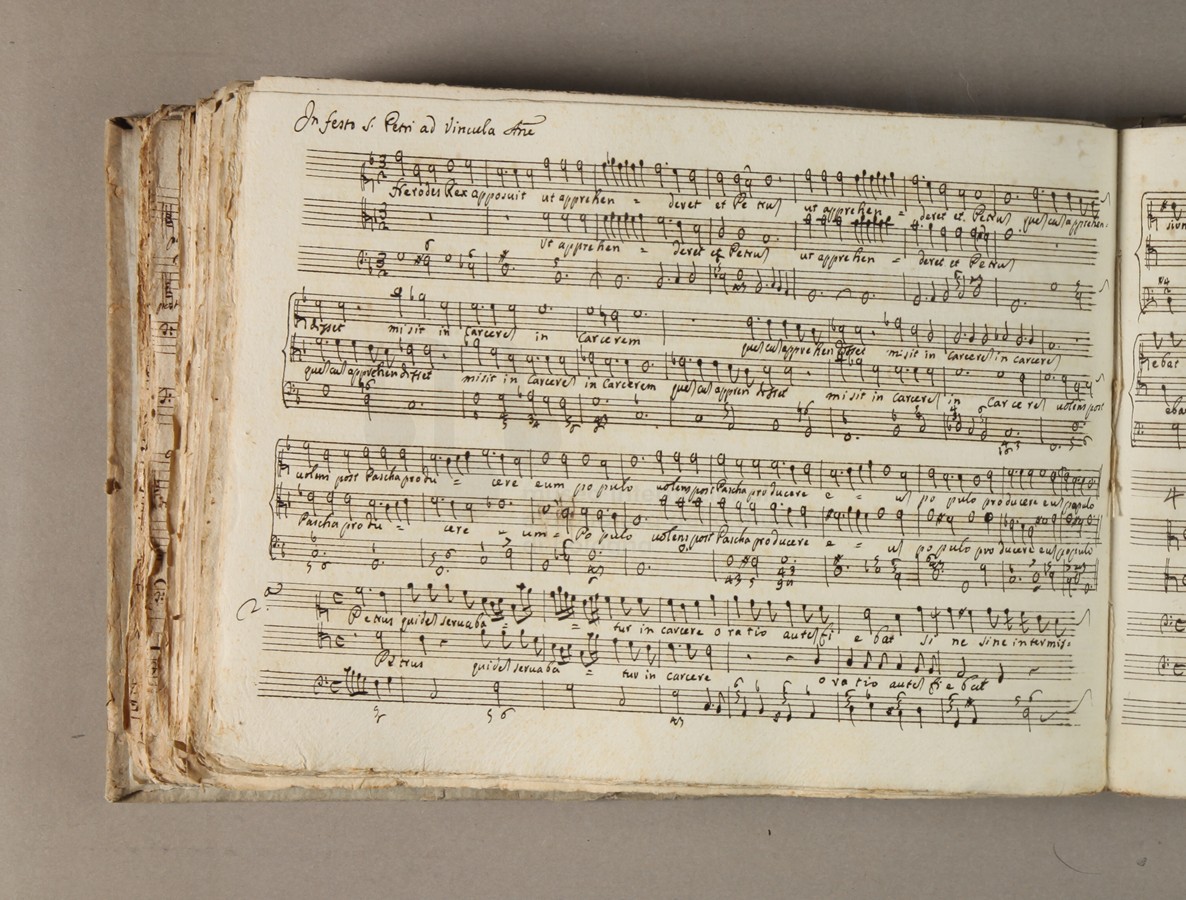 In festo S. Petri ad Vincula Ane
Herodes Rex apposuit ut apprehen = deret et Pe trus ut apprehen = deret et Petrus quem cum apprehen-
ut apprehen = deret et Petrus ut apprehen = deret et Petrus
disset misit in Carcerem in Carcerem quem cum apprehendisset misit in Carcerem in carcerem
quem cum apprehendisset misit in Carcerem in Carcerem quem cum apprehendisset misit in carcerem in Carcerem volens post
volens post Pascha produ = cere eum po pulo volens post Pascha producere e = um po pulo producere eum populo
Pascha produ = cere eum = Po pulo volens post Pascha producere e = um populo producere eum populo
2. a
Petrus quidem servaba = = tur in carcere o ra tio autem fi e bat si ne sine intermis:
Petrus quidem servaba = tur in carcere o ra tio autem fi e bat
sion
ebat
eba
4